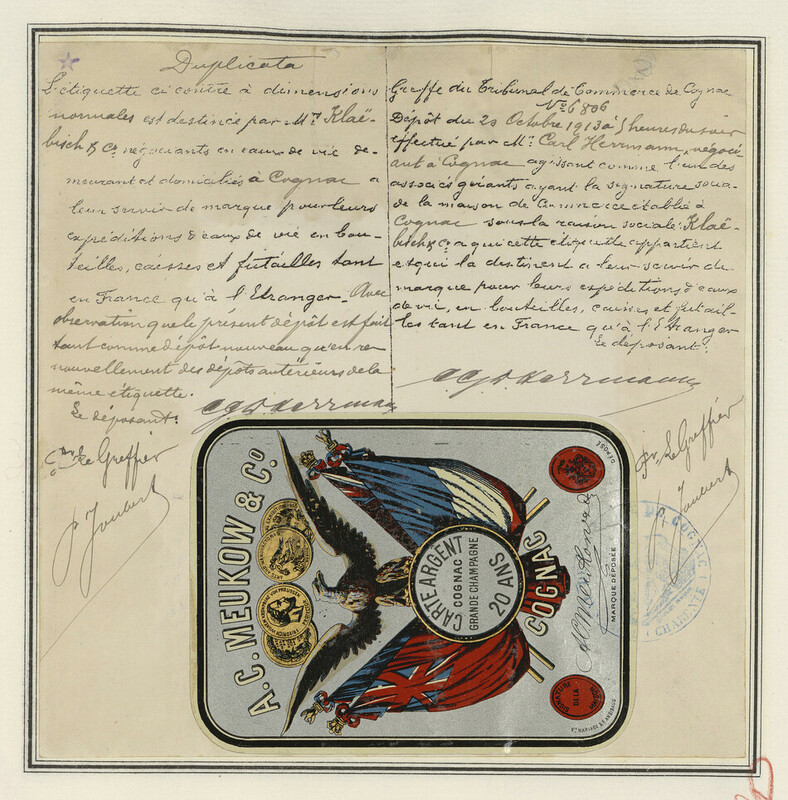 Duplicata
L'étiquette ci contre à dimensions
normales est destinée par Mrs Klaë-
bisch & Co négociants en eaux de vie de-
meurant et domiciliés à Cognac a
leur servir de marque pour leurs
expéditions d'eaux de vie en bou-
teilles, caisses et futailles tant
en France qu'à l'Etranger. Avec
observation que le présent dépôt est fait
tant comme dépôt nouveau qu'en re
nouvellement des dépôts antérieurs de la
même étiquette.
Le déposant:
Le Greffier
P. Joubert
Greffe du Tribunal de Commerce de Cognac
No 6806
Dépôt du 29 Octobre 1913 à 5 heures du soir
effectué par Mr Carl Herrmann, négoci-
ant à Cognac agissant comme l'un des
associés gérants ayant la signature socia-
le de la maison de Commerce établie à
Cognac sous la raison sociale: Klaë-
bisch & Co a qui cette étiquette appartient
et qui la destinent a leur servir de
marque pour leurs expéditions d'eaux
de vie, en bouteilles, caisses et futail-
les tant en France qu'à l'Etranger
Le déposant:
Pr. Le Greffier
P. Joubert
A.C. MEUKOW & Co
CARTE ARGENT
COGNAC
GRANDE CHAMPAGNE
20 ANS
COGNAC
DÉPOSÉ
ACMeukow & Co
MARQUE DÉPOSÉE
SIGNATURE
DE LA
MAISON
COGNAC
CHARENTE